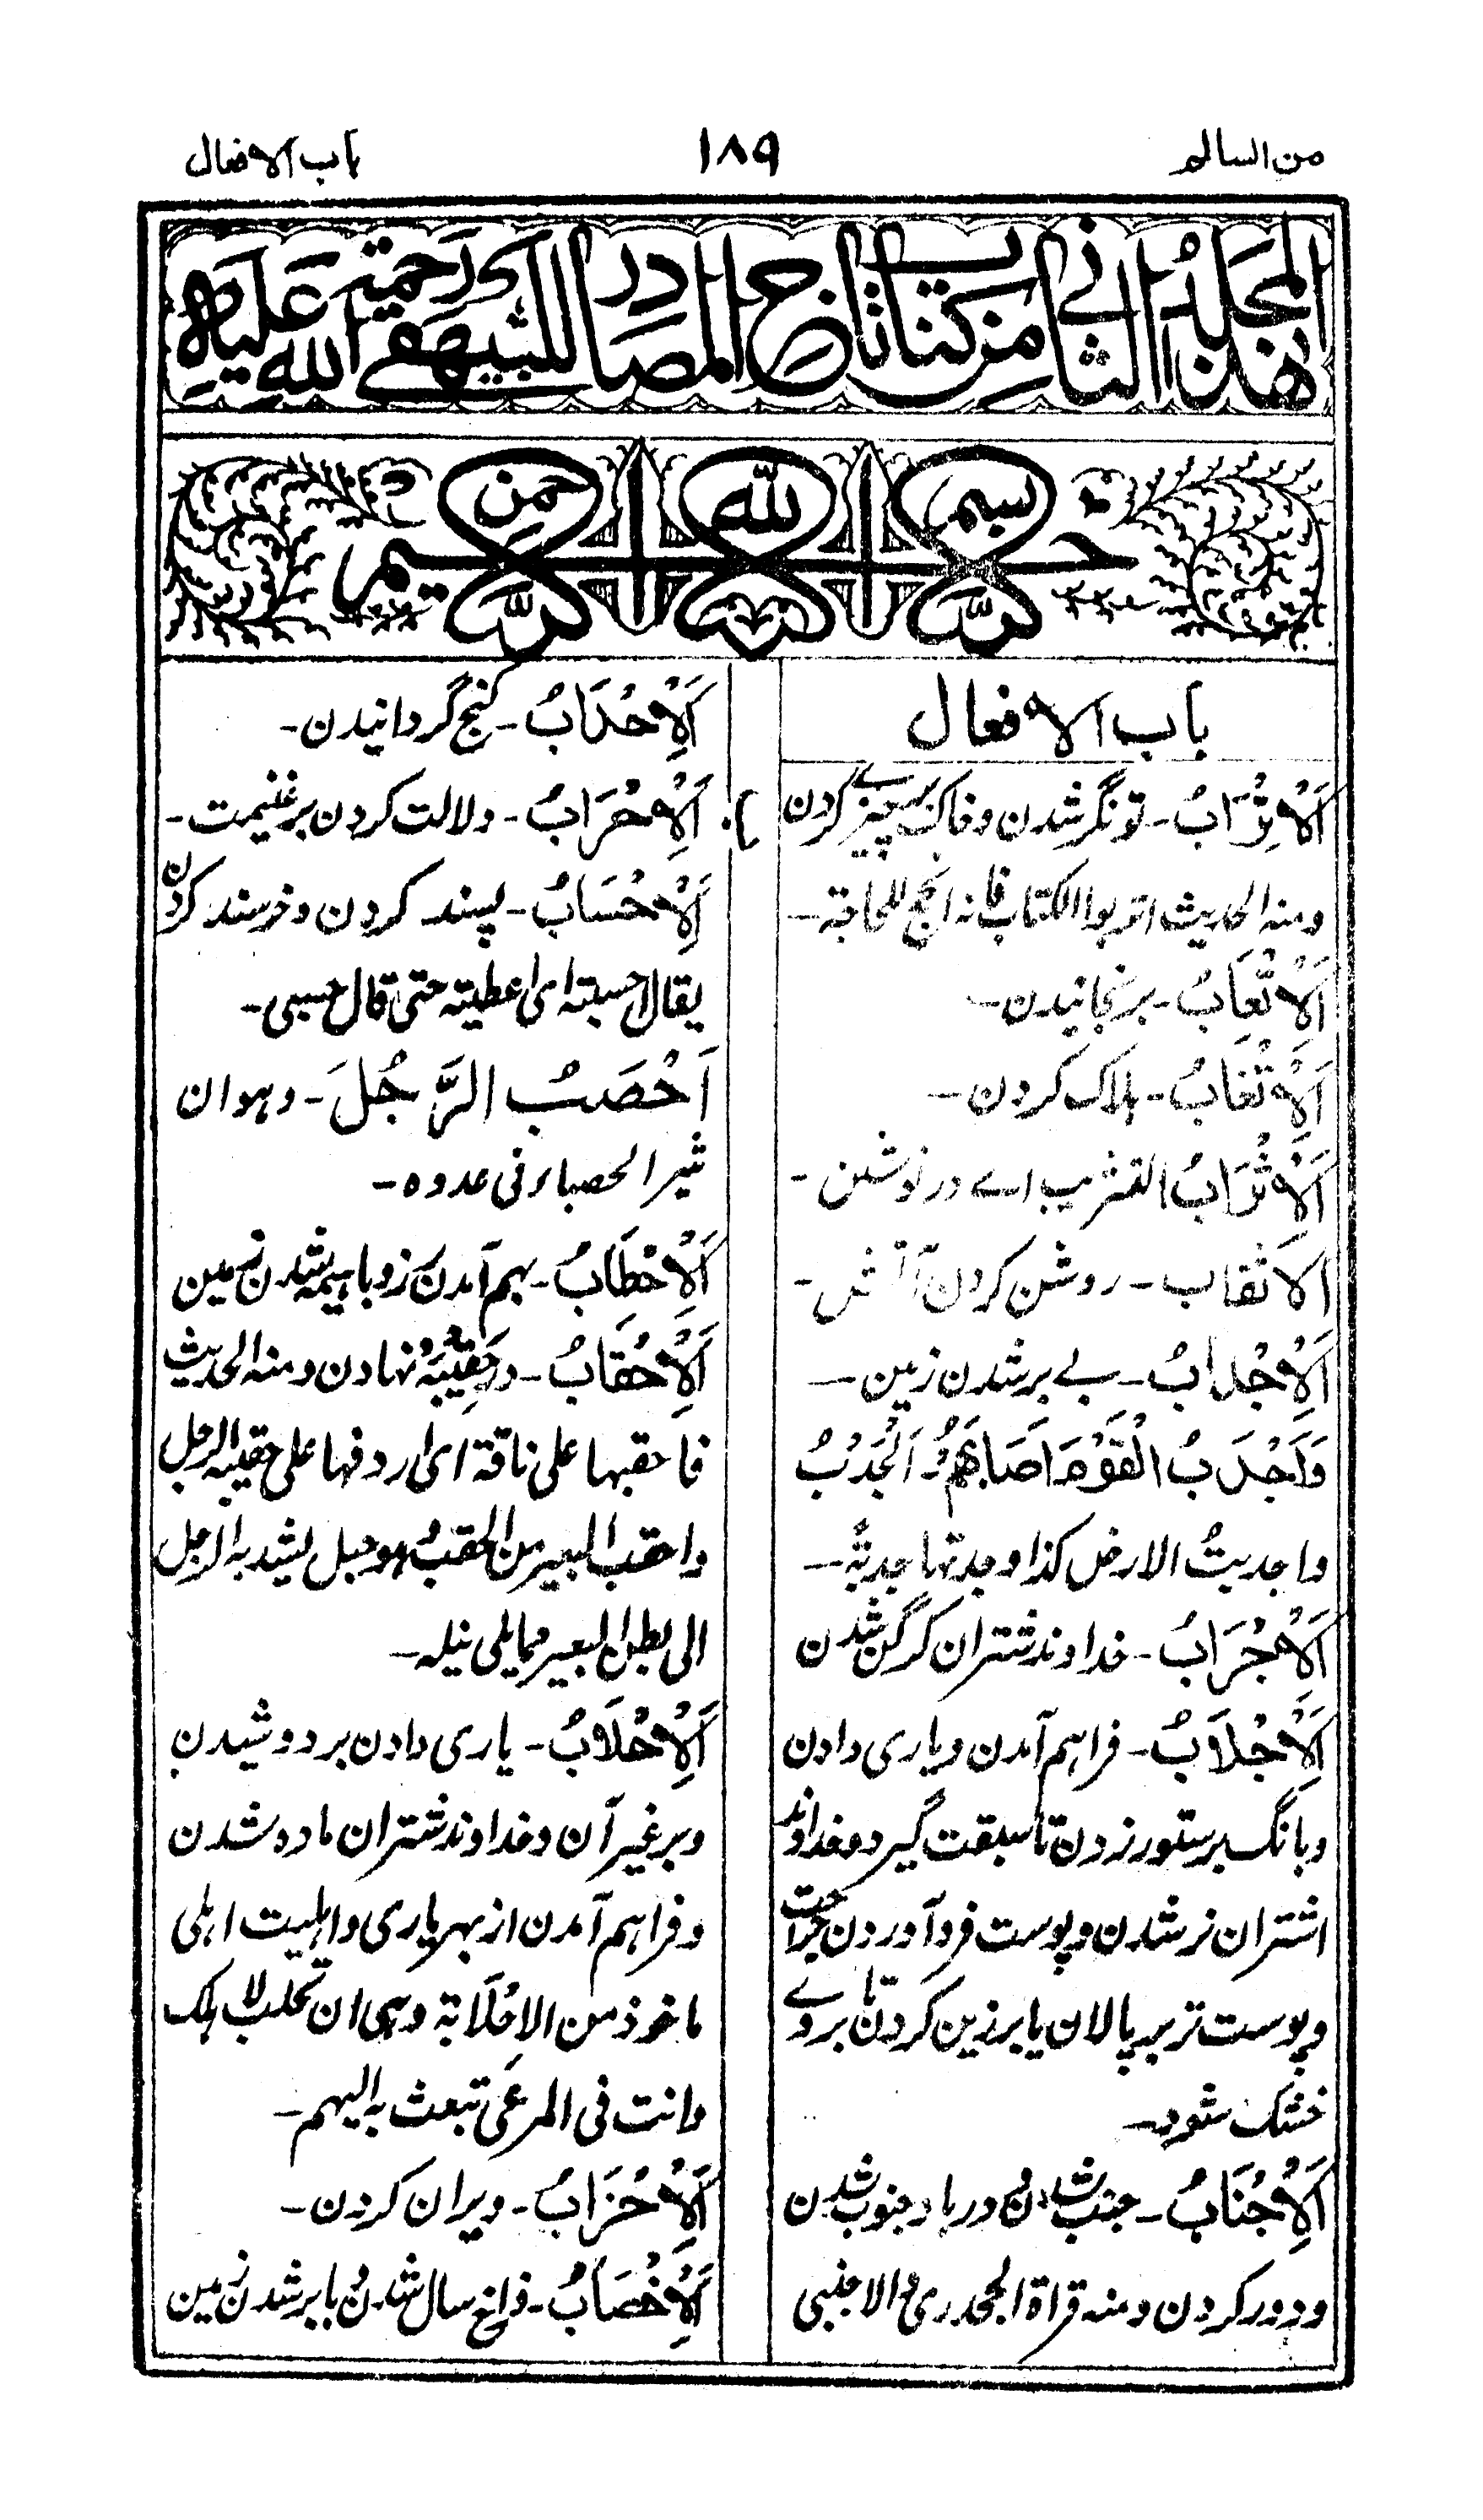 من السالم
۱۸۹
باب الافعال
هذا المجلد الثانی من کتاب تاج المصادر للبیهقی رحمة الله علیه
بسم الله الرحمن الرحیم
باب الافعال
اَلْاِتْرَابُ - تونگر شدن و خاک بر چیزے کردن
ومنه الحدیث اتربوا الکتاب فانه انجح للحاجة -
اَلْاِتْعَابُ - برنجانیدن -
اَلْاِتْغَابُ - هلاک کردن -
اَلْاِثْرَابُ التثریب اے در نوشتن -
الاثقاب - روشن کردن آتش -
اَلْاِجْدَابُ - بے بر شدن زمین -
وَاَجْدَبُ الْقَوْمَ اَصَابَهُمُ الْجَدْبُ
واجدبتُ الارض کذا وجدتها جدبةً -
اَلْاِجْرَابُ - خداوند شتران کرگن شدن
اَلْاِجْلَابُ - فراهم آمدن و یاری دادن
و بانگ بر ستور زدن تا سبقت گیرد و خداوند
اشتران نر شدن و پوست فرو آوردن جراحت
و پوست تر بر پالان یا بر زین کردن تا بروے
خشک شود -
اَلْاِجْنَابُ - جنب شدن و در باد جنوب شدن
و دور کردن ومنه قراة الجحدری والاجنبی
اَلْاِحْدَابُ - کنج گردانیدن -
اَلْاِحْرَابُ - دلالت کردن بر غنیمت -
اَلْاِحْسَابُ - پسند کردن و خرسند کردن
یقال احسبته ای اعطیته حتی قال حسبی -
اَحْصَبُ الرَّجُلَ - وهو ان
ثیر الحصباء فی عدوه -
اَلْاِحْطَابُ - بهم آمدن رز و با هیمه شدن زمین
اَلْاِحْقَابُ - در حَقِیْبَهٌ نهادن ومنه الحدیث
فاحقبها علی ناقة ای اردفها علی حقیبة الرحل
واحقب البعیر من الحقب وهو حبل یشد به الرحل
الی بطن البعیر مما یلی ثیله -
اَلْاِحْلَابُ - یاری دادن بر دوشیدن
و بر غیر آن و خداوند شتران ماده شدن
و فراهم آمدن از بهر یاری واهلیت اهلی
ماخوذ من الاِحْلَابة وهی ان تحلب لاهلک
وانت فی المرعَی تبعث به الیهم -
اَلْاِخْرَابُ - ویران کردن -
اَلْاِخْصَابُ - فراخ سال شدن و با بر شدن زمین